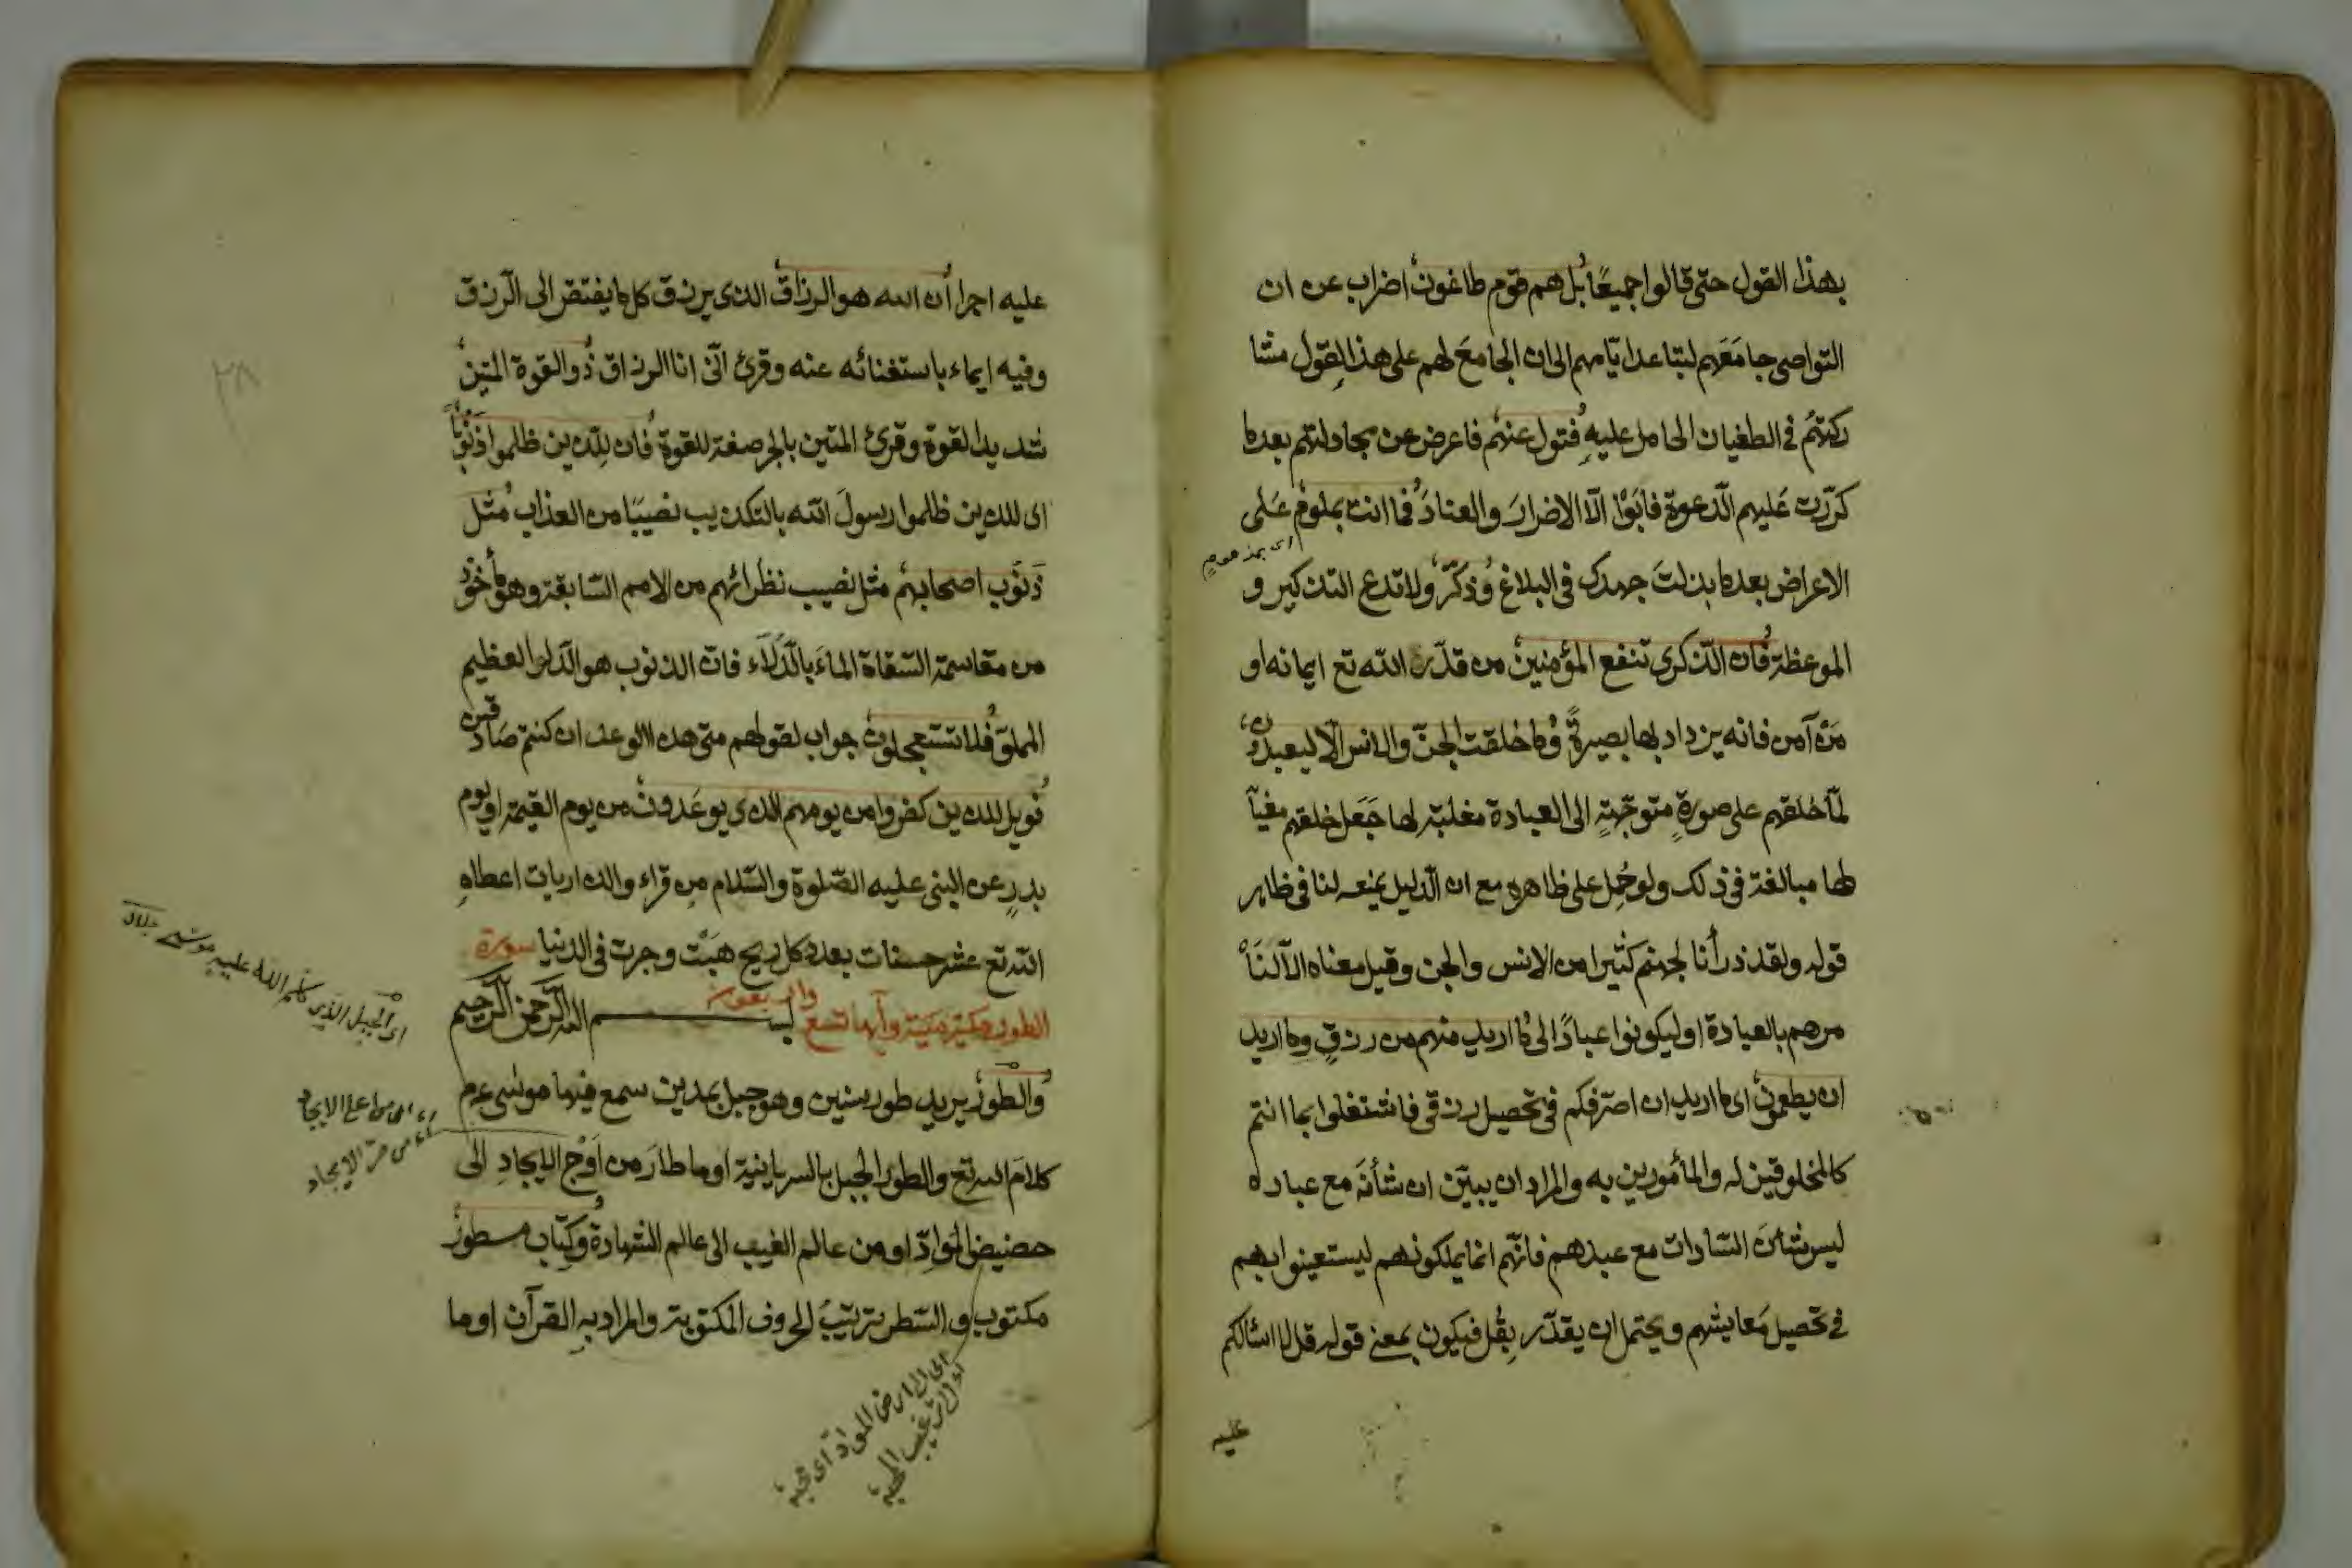 بهذا القول حتى قالوا جميعًا بل هم قوم طاغون اضراب عن ان
التواصى جامعهم لتباعد ايّامهم الى ان الجامعَ لهم على هذا القول مشا
ركتهم فى الطغيان الحامل عليهِ فتول عنهم فاعرض عن مجادلتهم بعدما
كرّرت عَليهم الدّعوة فابَوْا الّا الاصرارَ والعنادَ فما انت بملوم عَلى
اى بمذموم
الاعراض بعدما بذلتَ جهدك فى البلاغ وذكّر ولا تدع التذكير و
الموعظة فان الذّكرى تنفع المؤمنين من قدّر الله تع ايمانه او
مَن آمن فانه يزداد بها بصيرةً وما خلقت الجنّ والانس الّا ليعبدون
لمّا خلقهم على صورةٍ متوجّهةٍ الى العبادة مغلبة لها جَعَل خلقهم مغيّا
لها مبالغة فى ذلك ولو حُمِل على ظاهره مع ان الدّليل يمنعه لنا فى ظاهر
قوله ولقد ذرأنا لجهنم كثيرا من الانس والجن وقيل معناه الّا لنَأ
مرهم بالعبادة او ليكونوا عبادًا لى ما اريد منهم من رزقٍ وما اريد
ان يطعمون اى ما اريد ان اصرّفكم فى تحصيل رزقى فاشتغلوا بما انتم
كالمخلوقين له والمأمورين به والمراد ان يبيّن ان شأنَه مع عباده
ليس شأن السّادات مع عبيدهم فانّهم انما يملكونهم ليستعينوا بهم
فى تحصيل مَعايشهم ويحتمل ان يقدّر بِقُل فيكون بمعنى قوله قل لا اسئالكم
عليه
عليه اجرا ان الله هو الرزاق الذى يرزق كل ما يفتقر الى الرّزق
وفيه ايماء باستغنائه عنه وقرئ انّى انا الرزاق ذو القوة المتين
شديد القوة وقرئ المتين بالجر صفة للقوة فان للّذين ظلموا ذنوبًا
اى للذين ظلموا رسولَ الله بالتكذيب نصيبًا من العذاب مثل
ذَنوب اصحابهم مثل نصيب نظرائهم من الامم السّابقة وهو مأخوذ
من مقاسمة السّقاة الماءَ بالدِّلَاء فانّ الذنوب هو الدّلو العظيم
المملوّ فلا تستعجلون جواب لقولهم متى هذا الوعد ان كنتم صَادقين
فويل للذين كفروا من يومهم الذى يوعَدون من يوم القيمة او يوم
بدرٍ عن النبى عليه الصّلوة والسّلام مِن قراء والذاريات اعطاهِ
الله تع عشر حسنات بعدد كل ريح هَبَّت وجرت فى الدنيا سورة
الطور مكية وآيها تسع والاربعون بسم الله الرّحمن الرّحيم
والطور يريد طور سينين وهو جبل بمدين سمع فيها موسى عم
كلامَ الله تع والطور الجبل بالسريانية او ما طارَ من اَوْج الايجادِ الى
حضيض الموادّ او من عالم الغيب الى عالم الشهادة وكتاب مسطور
مكتوب والسّطر ترتيبُ الحروف المكتوبة والمراد بهِ القرآن او ما
اى الجبل الذى كلّم الله عليه موسى جلال
اى من اعلى الايجاد